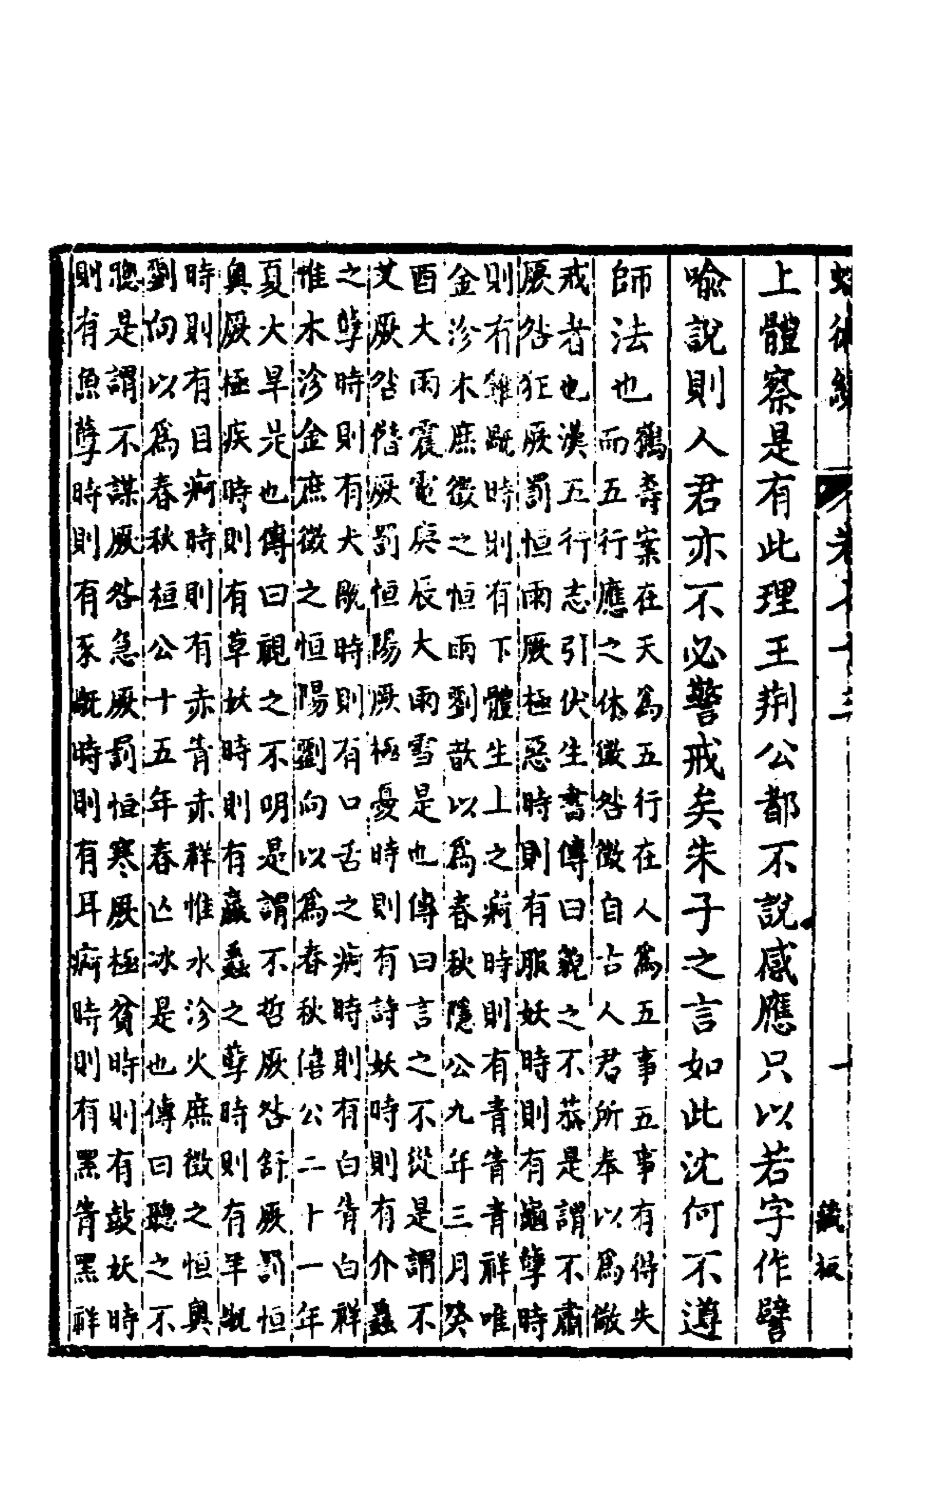 蛾術編
藏板
上體察是有此理王荆公都不說感應只以若字作譬
喻說則人君亦不必警戒矣朱子之言如此沈何不遵
師法也
鶴壽案在天爲五行在人爲五事五事有得失
而五行應之休徵咎徵自古人君所奉以爲儆
戒者也漢五行志引伏生書傳曰貌之不恭是謂不肅
厥咎狂厥罰恒雨厥極惡時則有服妖時則有龜孽時
則有雞旤時則有下體生上之痾時則有青眚青祥唯
金沴木庶徵之恒雨劉歆以爲春秋隱公九年三月癸
酉大雨震電庚辰大雨雪是也傳曰言之不從是謂不
艾厥咎僭厥罰恒陽厥極憂時則有詩妖時則有介蟲
之孽時則有犬旤時則有口舌之痾時則有白眚白祥
惟木沴金庶徵之恒陽劉向以爲春秋僖公二十一年
夏大旱是也傳曰視之不明是謂不哲厥咎舒厥罰恒
奧厥極疾時則有草妖時則有蠃蟲之孽時則有羊旤
時則有目痾時則有赤眚赤祥惟水沴火庶徵之恒奧
劉向以爲春秋桓公十五年春亡冰是也傳曰聽之不
聰是謂不謀厥咎急厥罰恒寒厥極貧時則有鼓妖時
則有魚孽時則有豕旤時則有耳痾時則有黑眚黑祥